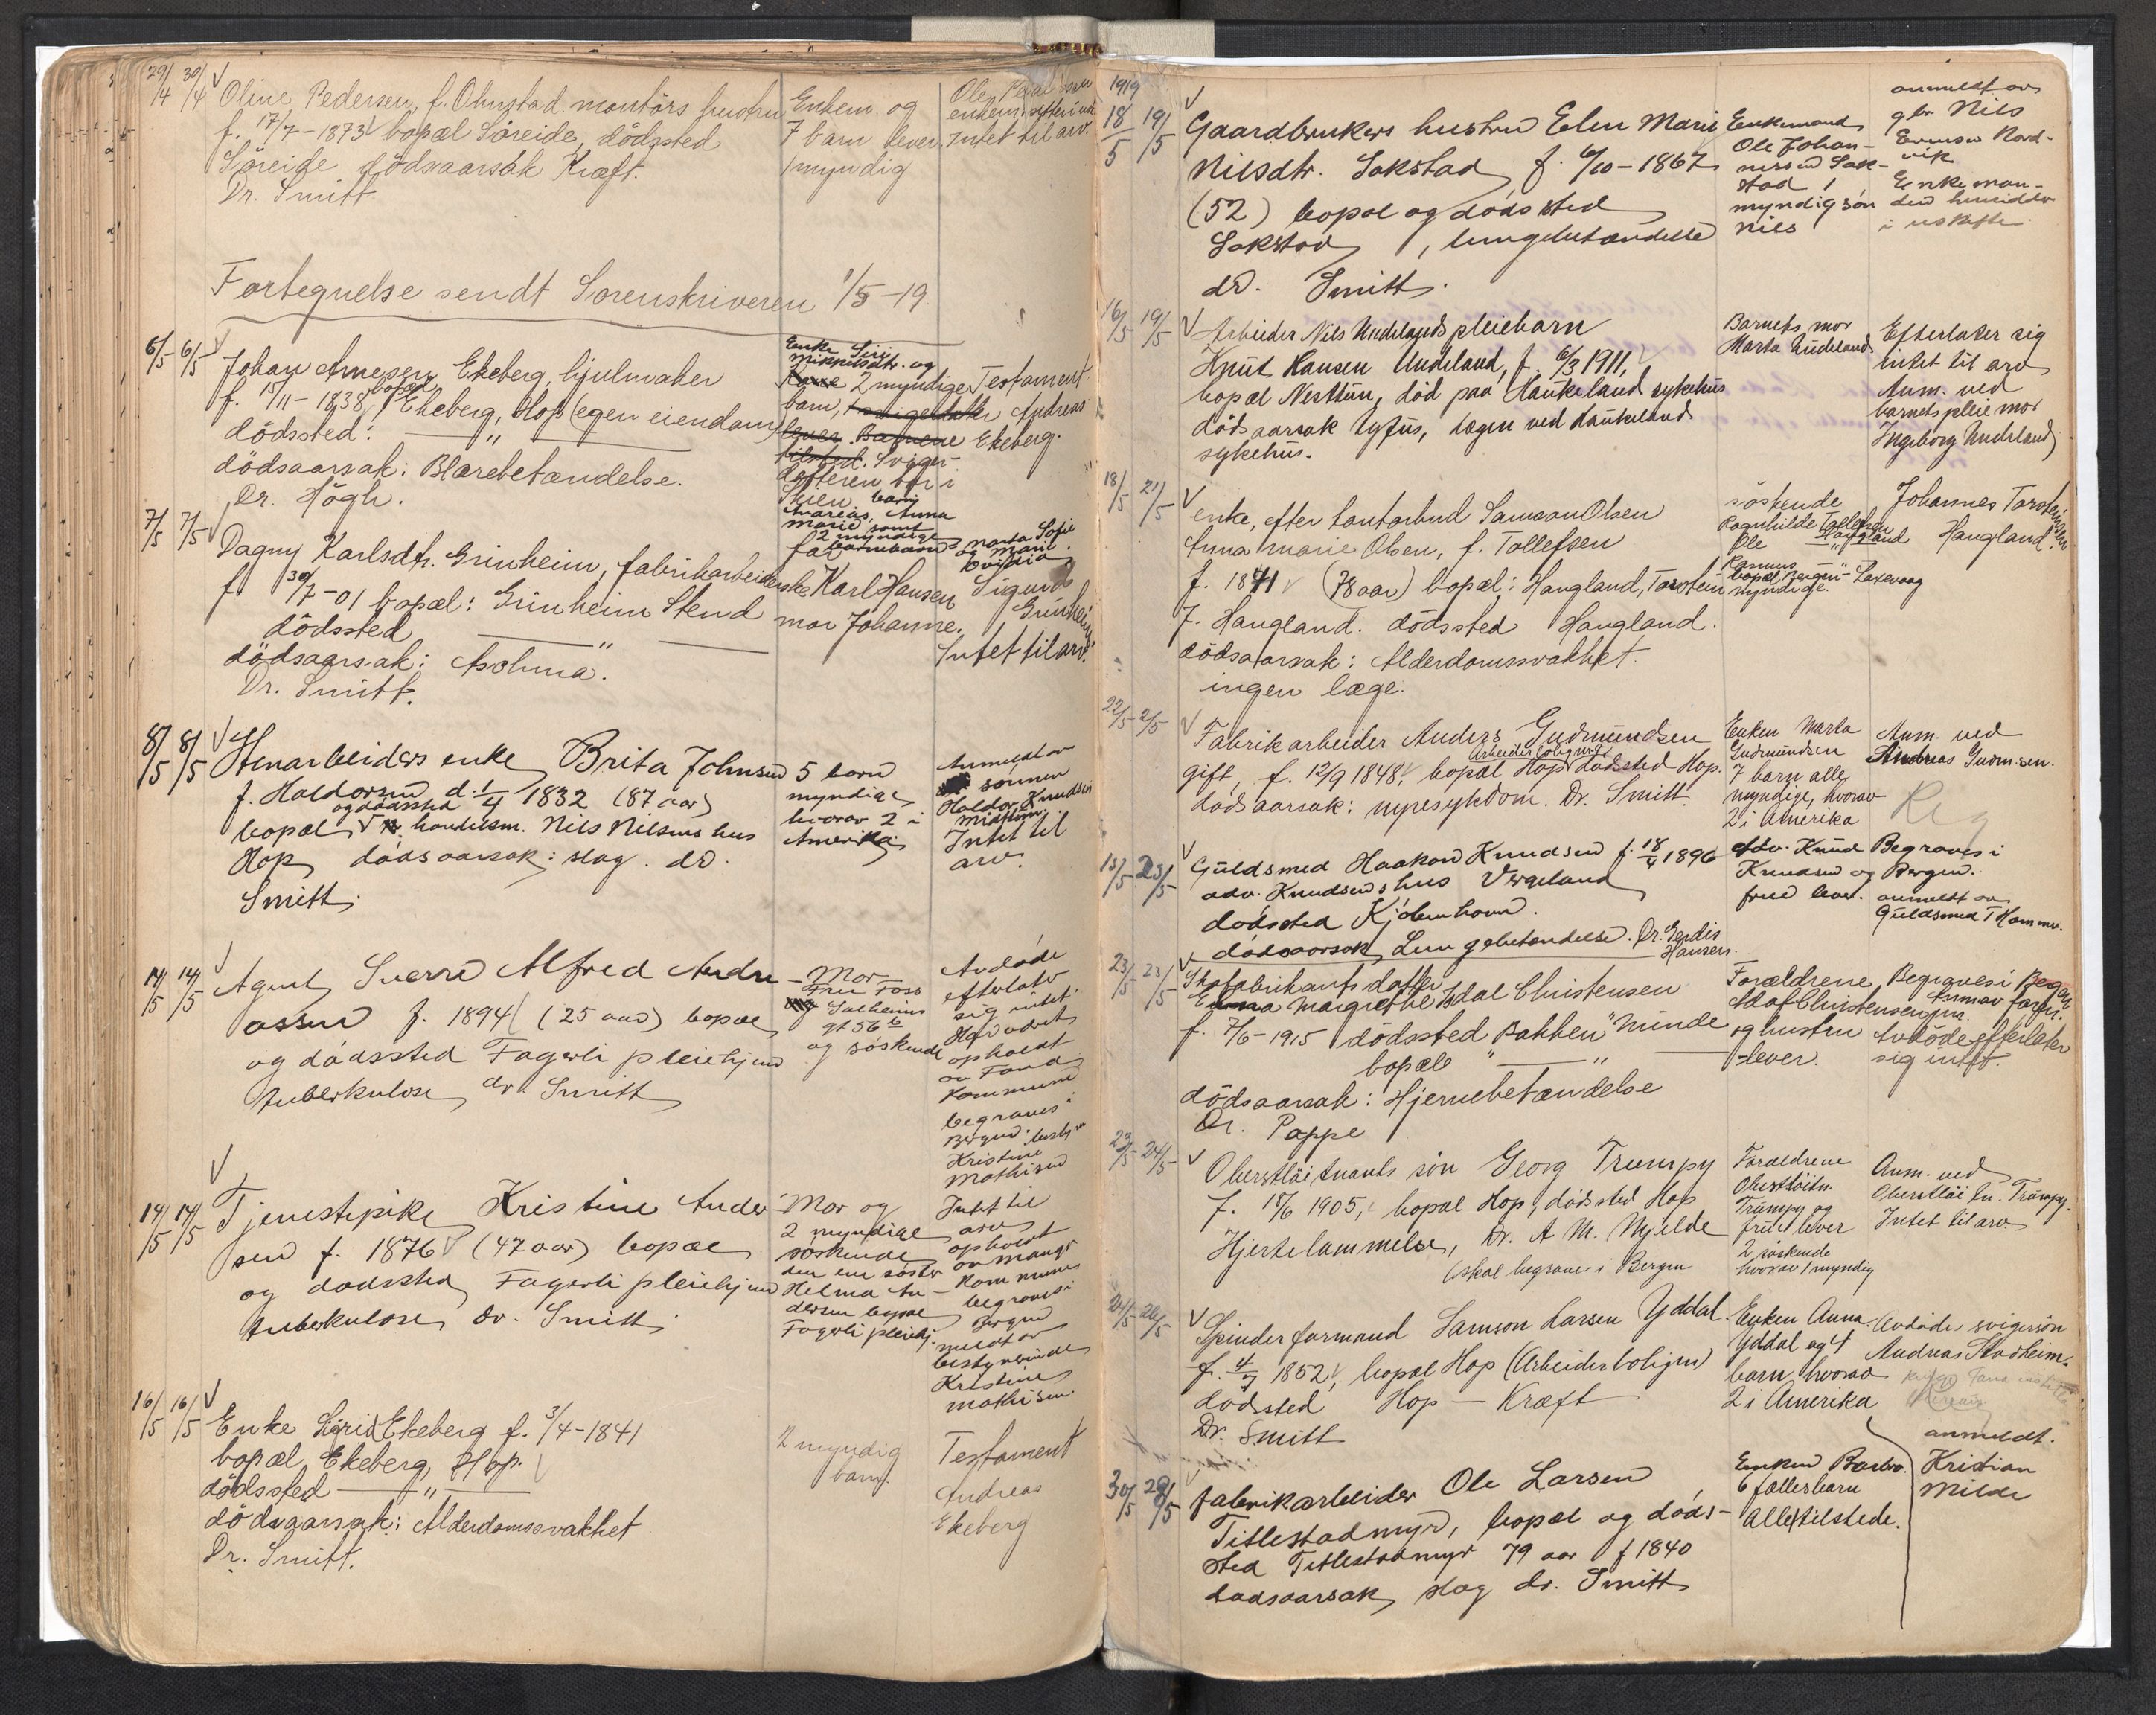 29/4 30/4 Oline Pedersen, f. Olmstad. montörs hustru
f. 17/7-1873 bopæl Söreide, dödssted
Söreide dödsaarsak Kræft.
Dr. Smitt
Enkem og
7 barn lever
1 myndig
Ole
enkem.
Intet til arv.
Fortegnelse sendt Sorenskriveren 1/5-19.
6/5 6/5 Johan Arnesen Ekeberg, hjulmaker
f. 15/11-1838, bopæl Ekeberg, Hop (egen eiendom)
dödssted: — " —
dödsaarsak: Blærebetændelse.
Dr. Högh.
Enke Siri
Mikkelsdtr. og
2 myndige
barn,
lever. Barnene
tilsted. Sviger-
datteren bor i
Skien barn
Andreas, Anna
Marie samt
2 myndige
barnebarn
Marta Sofie
og Marie
Testament.
Andreas
Ekeberg.
7/5 7/5 Dagny Karlsdtr. Grinheim, fabrikarbeiderske
f 30/7-01 bopæl: Grinheim Stend
dödssted — " —
dödsaarsak: Astma.
Dr. Smitt.
far Karl Hansen
mor Johanne.
Sigurd
Grinheim
Intet til arv.
8/5 8/5 Stenarbeiders enke Brita Johnsen
f. Haldorsen d. 1/4 1832 (87 aar)
og dödssted
bopæl handelsm. Nils Nilsens hus
Hop dödsaarsak: slag. dr.
Smitt.
5 barn
myndige
hvorav 2 i
Amerika
Anmeldt av
sönnen
Haldor Knudsen
Midttun
Intet til
arv.
14/5 14/5 Agent Sverre Alfred Andre-
assen f. 1894 (25 aar) bopæl
og dödssted Fagerli pleiehjem
tuberkulose dr. Smitt
Mor
Fru Foss
Solheims
gt 56 b
og söskende
Avdöde
efterlate
sig intet.
Har været
opholdt
av Fana
Kommune
begraves i
Bergen.
Kristine
Mathisen
14/5 14/5 Tjenestepike Kristine Ander-
sen f. 1876 (47 aar) bopæl
og dödssted Fagerli pleiehjem
tuberkulose dr. Smitt
Mor og
2 myndige
söskende
den ene söster
Helma An-
dersen bopæl
Fagerli pleiehj.
Intet til
arv
opholdt
av Mangr
Kommune
begraves i
Bergen
meldt av
bestyrerinde
Kristine
Mathisen.
16/5 16/5 Enke Sörid Ekeberg f. 3/4-1841
bopæl Ekeberg, Hop.
dödssted — " —
dödsaarsak: Alderdomssvakhet
Dr. Smitt.
2 myndig
barn.
Testament
Andreas
Ekeberg
1919
18/5 19/5 Gaardbrukers hustru Elen Marie
Nilsdtr. Sakstad f. 6/10-1867
(52) bopæl og dödssted
Sakstad, lungebetændelse
dr. Smitt.
Enkemand
Ole Johan-
nessen Sak-
stad 1
myndig sön
Nils
anmeldt av
gbr Nils
Evensen Nord-
vik
Enkeman-
den hensidder
i uskifte
16/5 19/5 Arbeider Nils Undelands pleiebarn
Knut Hansen Undeland, f. 6/3 1911,
bopæl Nesttun, död paa Haukeland sykehus
dödsaarsak tyfus, lægen ved Haukeland
sykehus.
Barnets mor
Marta Undeland
Efterlater sig
intet til arv
Anm. ved
barnets pleiemor
Ingeborg Undeland
18/5 21/5 enke, efter lantarbud Samson Olsen
Anna Marie Olsen, f. Tollefsen
f. 1841 (78 aar) bopæl: Haugland, Torstein
J. Haugland. dödssted Haugland.
dödsaarsak: Alderdomssvakhet.
ingen læge.
söskende
Ragnhilde Tollefsen
Ole — " — Haugland
Rasmus — " —
bopæl Bergen - Laxevaag
myndige.
Johannes Torsteinsen
Haugland.
22/5 2/5 Fabrikarbeider Anders Gudmundsen
gift, f. 12/9 1848, bopæl Hop Arbeiderboligen dödsted Hop.
dödsaarsak: nyresykdom. Dr. Smitt.
Enken Marta
Gudmundsen
7 barn alle
myndige, hvorav
2 i Amerika
Anm. ved
Andreas Gudm.sen.
15/5 23/5 Guldsmed Haakon Knudsen f. 18/9 1896
adv. Knudsens hus Vergeland
dödssted Kjöbenhavn.
dödsaarsak Lungebetændelse. Dr. Gerdis
Hansen.
adv. Knud
Knudsen og
frue lever.
Begraves i
Bergen.
anmeldt av
Guldsmed T Hammer.
23/5 23/5 Skofabrikants datter
Margrethe Ydal Christensen
f. 7/6-1915 dödssted Bakken "Minde
bopæl " — "
dödsaarsak: Hjernebetændelse
Dr. Poppe
Forældrene
Adolf Christensen jun.
og hustru
lever.
Begraves i Bergen
Anm av farfar.
Avdöde efterlater
sig intet.
23/5 24/5 Oberstlöitnants sön Georg Trumpy
f. 17/6 1905, bopæl Hop, dödsted Hop
Hjertelammelse, Dr. A M. Mjelde
(skal begraves i Bergen
Forældrene
Oberstlöitn.
Trumpy og
frue lever
2 söskende
hvorav 1 myndig
Anm. ved
Oberstlöitn. Trumpy.
Intet til arv
24/5 26/5 Spinderformand Samson Larsen Yddal
f. 4/7 1852, bopæl Hop (Arbeiderboligen)
dödsted Hop — Kræft
Dr. Smitt
Enken Anna
Yddal og 4
barn hvorav
2 i Amerika
Avdödes svigersön
Andreas Stadheim.
30/5 28/5 fabrikarbeider Ole Larsen
Titlestadmyr, bopæl og döds-
sted Titlestadmyr 79 aar f 1840
dödsaarsak slag dr. Smitt
Enken Barbro.
6 fællesbarn
Alle tilstede.
anmeldt.
Kristian
Milde